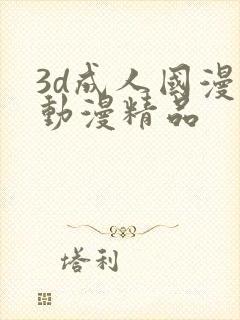 3d成人國漫
動漫精品
塔利